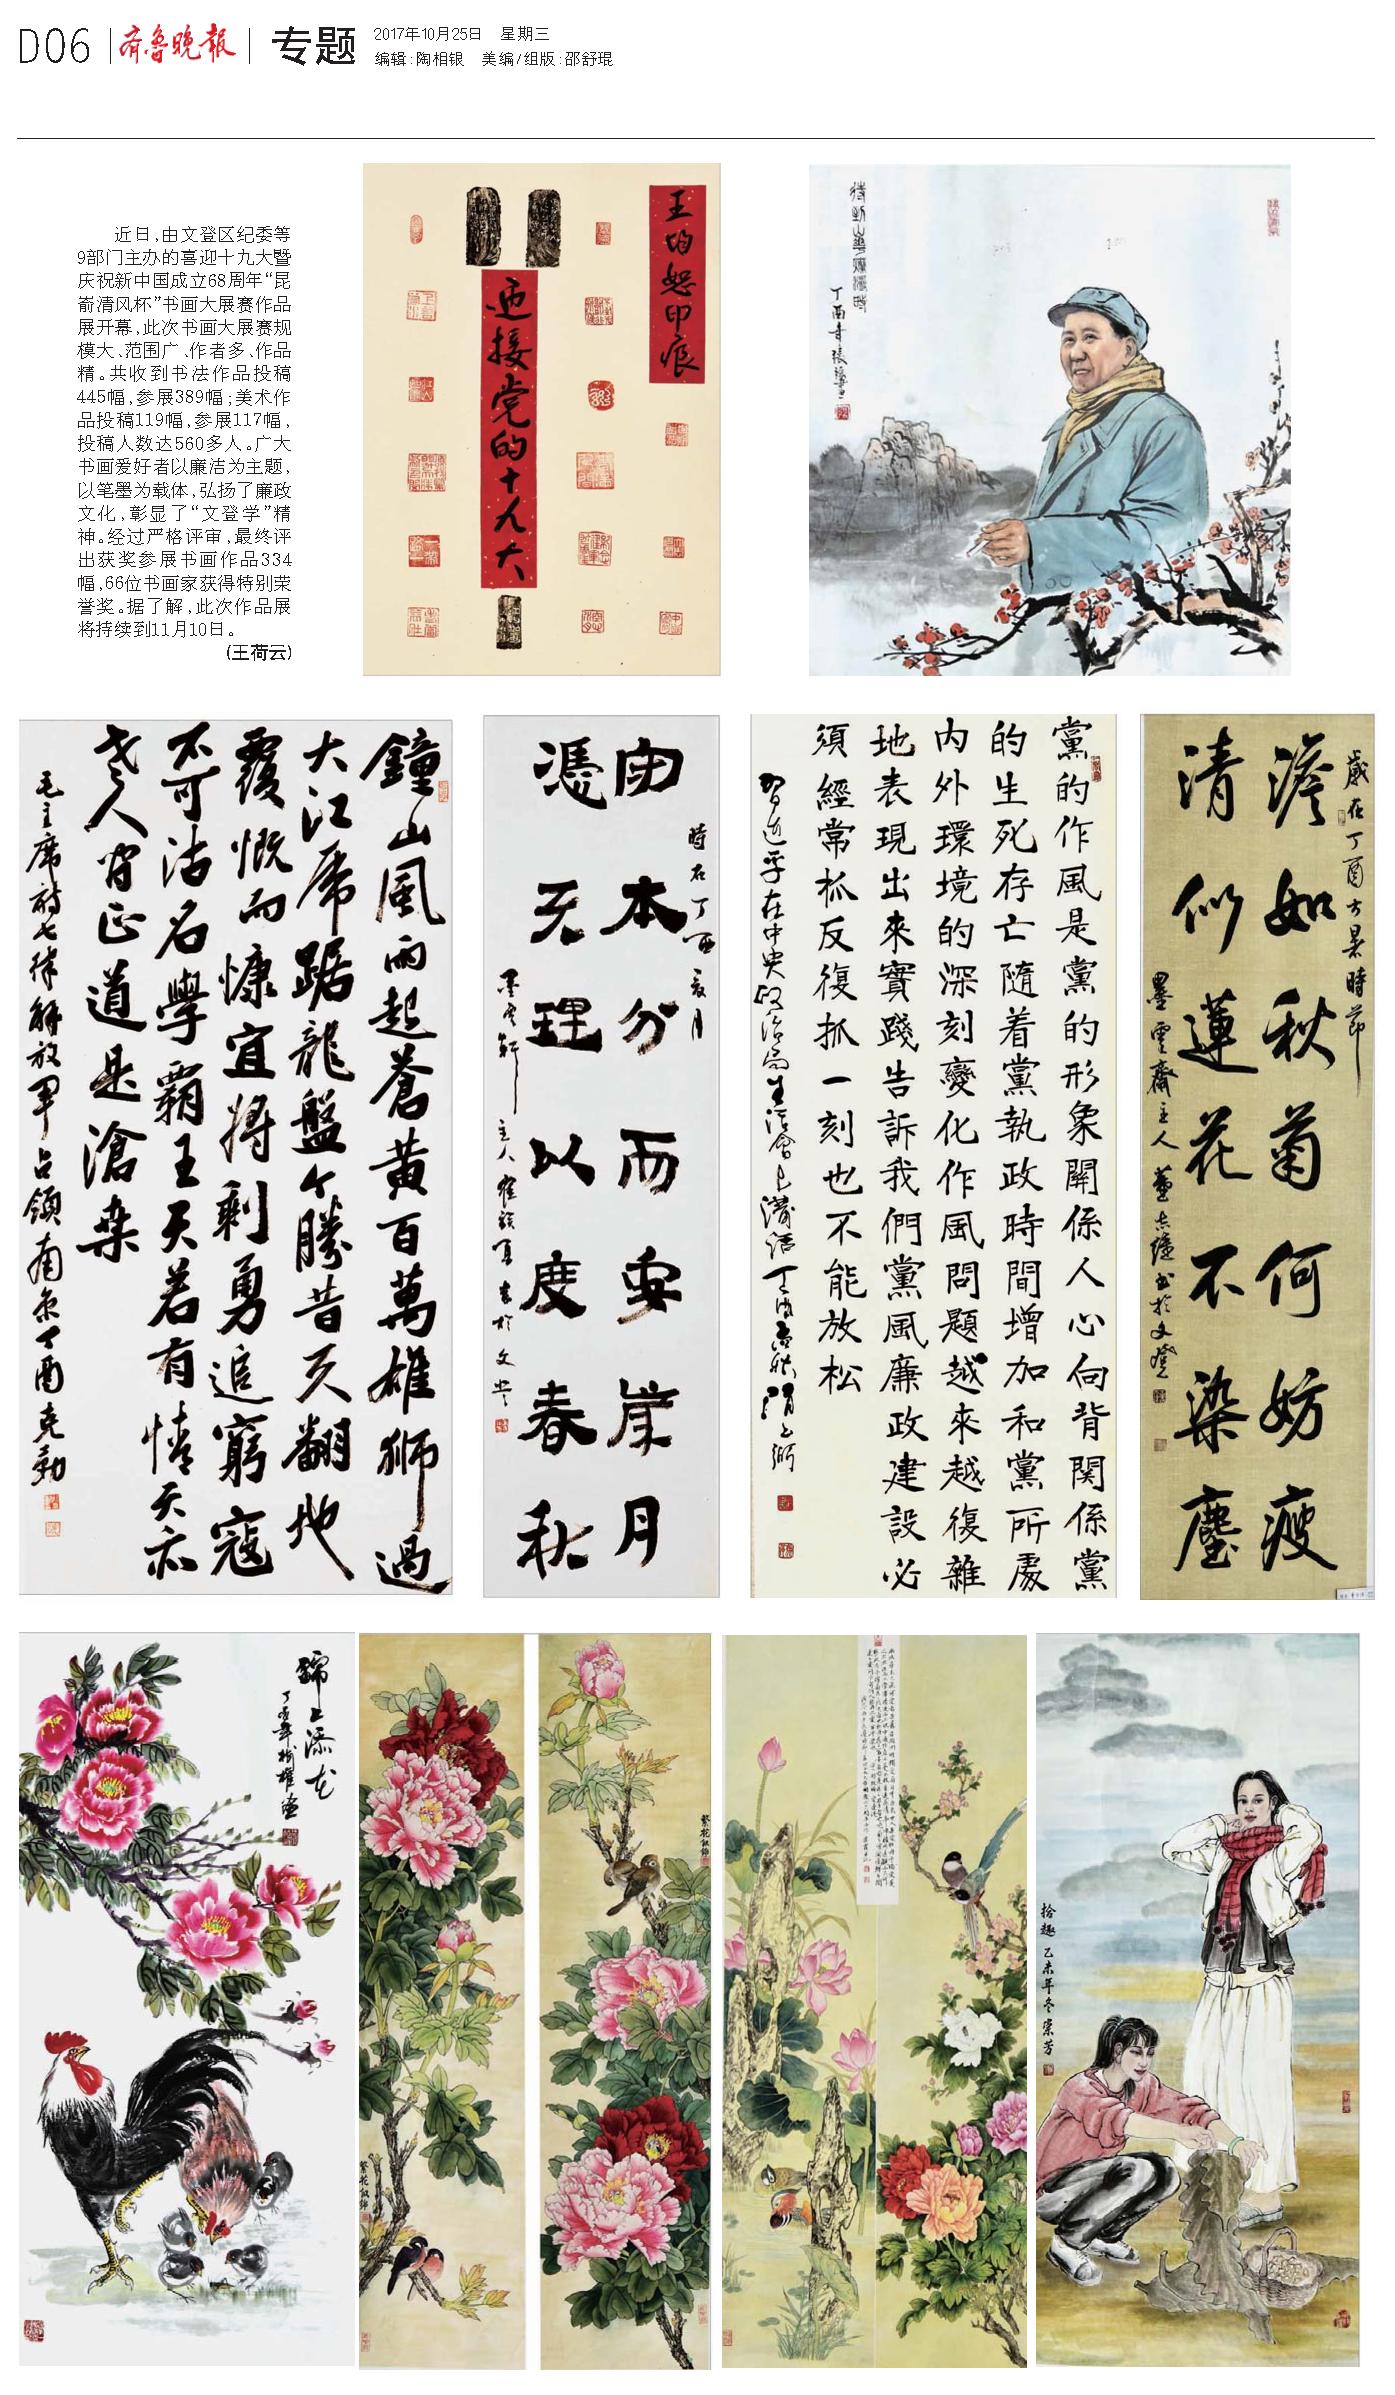 D06
齐鲁晚报
专题
2017年10月25日 星期三
编辑:陶相银 美编/组版:邵舒琨
近日,由文登区纪委等
9部门主办的喜迎十九大暨
庆祝新中国成立68周年“昆
嵛清风杯”书画大展赛作品
展开幕,此次书画大展赛规
模大、范围广、作者多、作品
精。共收到书法作品投稿
445幅,参展389幅;美术作
品投稿119幅,参展117幅,
投稿人数达560多人。广大
书画爱好者以廉洁为主题,
以笔墨为载体,弘扬了廉政
文化,彰显了“文登学”精
神。经过严格评审,最终评
出获奖参展书画作品334
幅,66位书画家获得特别荣
誉奖。据了解,此次作品展
将持续到11月10日。
(王荷云)
王均恕印痕
迎接党的十九大
待到山花烂漫时
丁酉年
鐘山風雨起蒼黄百萬雄師過
大江虎踞龍盤今勝昔天翻地
覆慨而慷宜將剩勇追窮寇
不可沽名學霸王天若有情天亦
老人间正道是滄桑
毛主席诗七律解放軍占領南京丁酉克勤
時在丁酉夏月
守本分而安歲月
憑天理以度春秋
黨的作風是黨的形象關係人心向背関係黨
的生死存亡隨着黨執政時間增加和黨所處
内外環境的深刻變化作風問題越來越復雜
地表現出來實踐告訴我們黨風廉政建設必
須經常抓反復抓一刻也不能放松
習近平在中央政治局生活會上講話
歲在丁酉大暑時節
澹如秋菊何妨瘦
清似蓮花不染塵
錦上添花
繁花似錦
繁花似錦
拾趣 乙未年冬崇芳